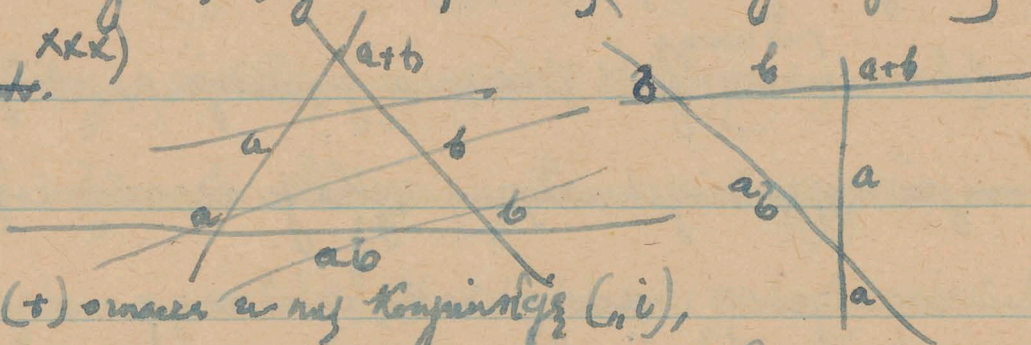 xxx)
a+b b a+b
a b
a b
a
a b
ab
a
(+) oznacza w niej Konjunkcję („i),